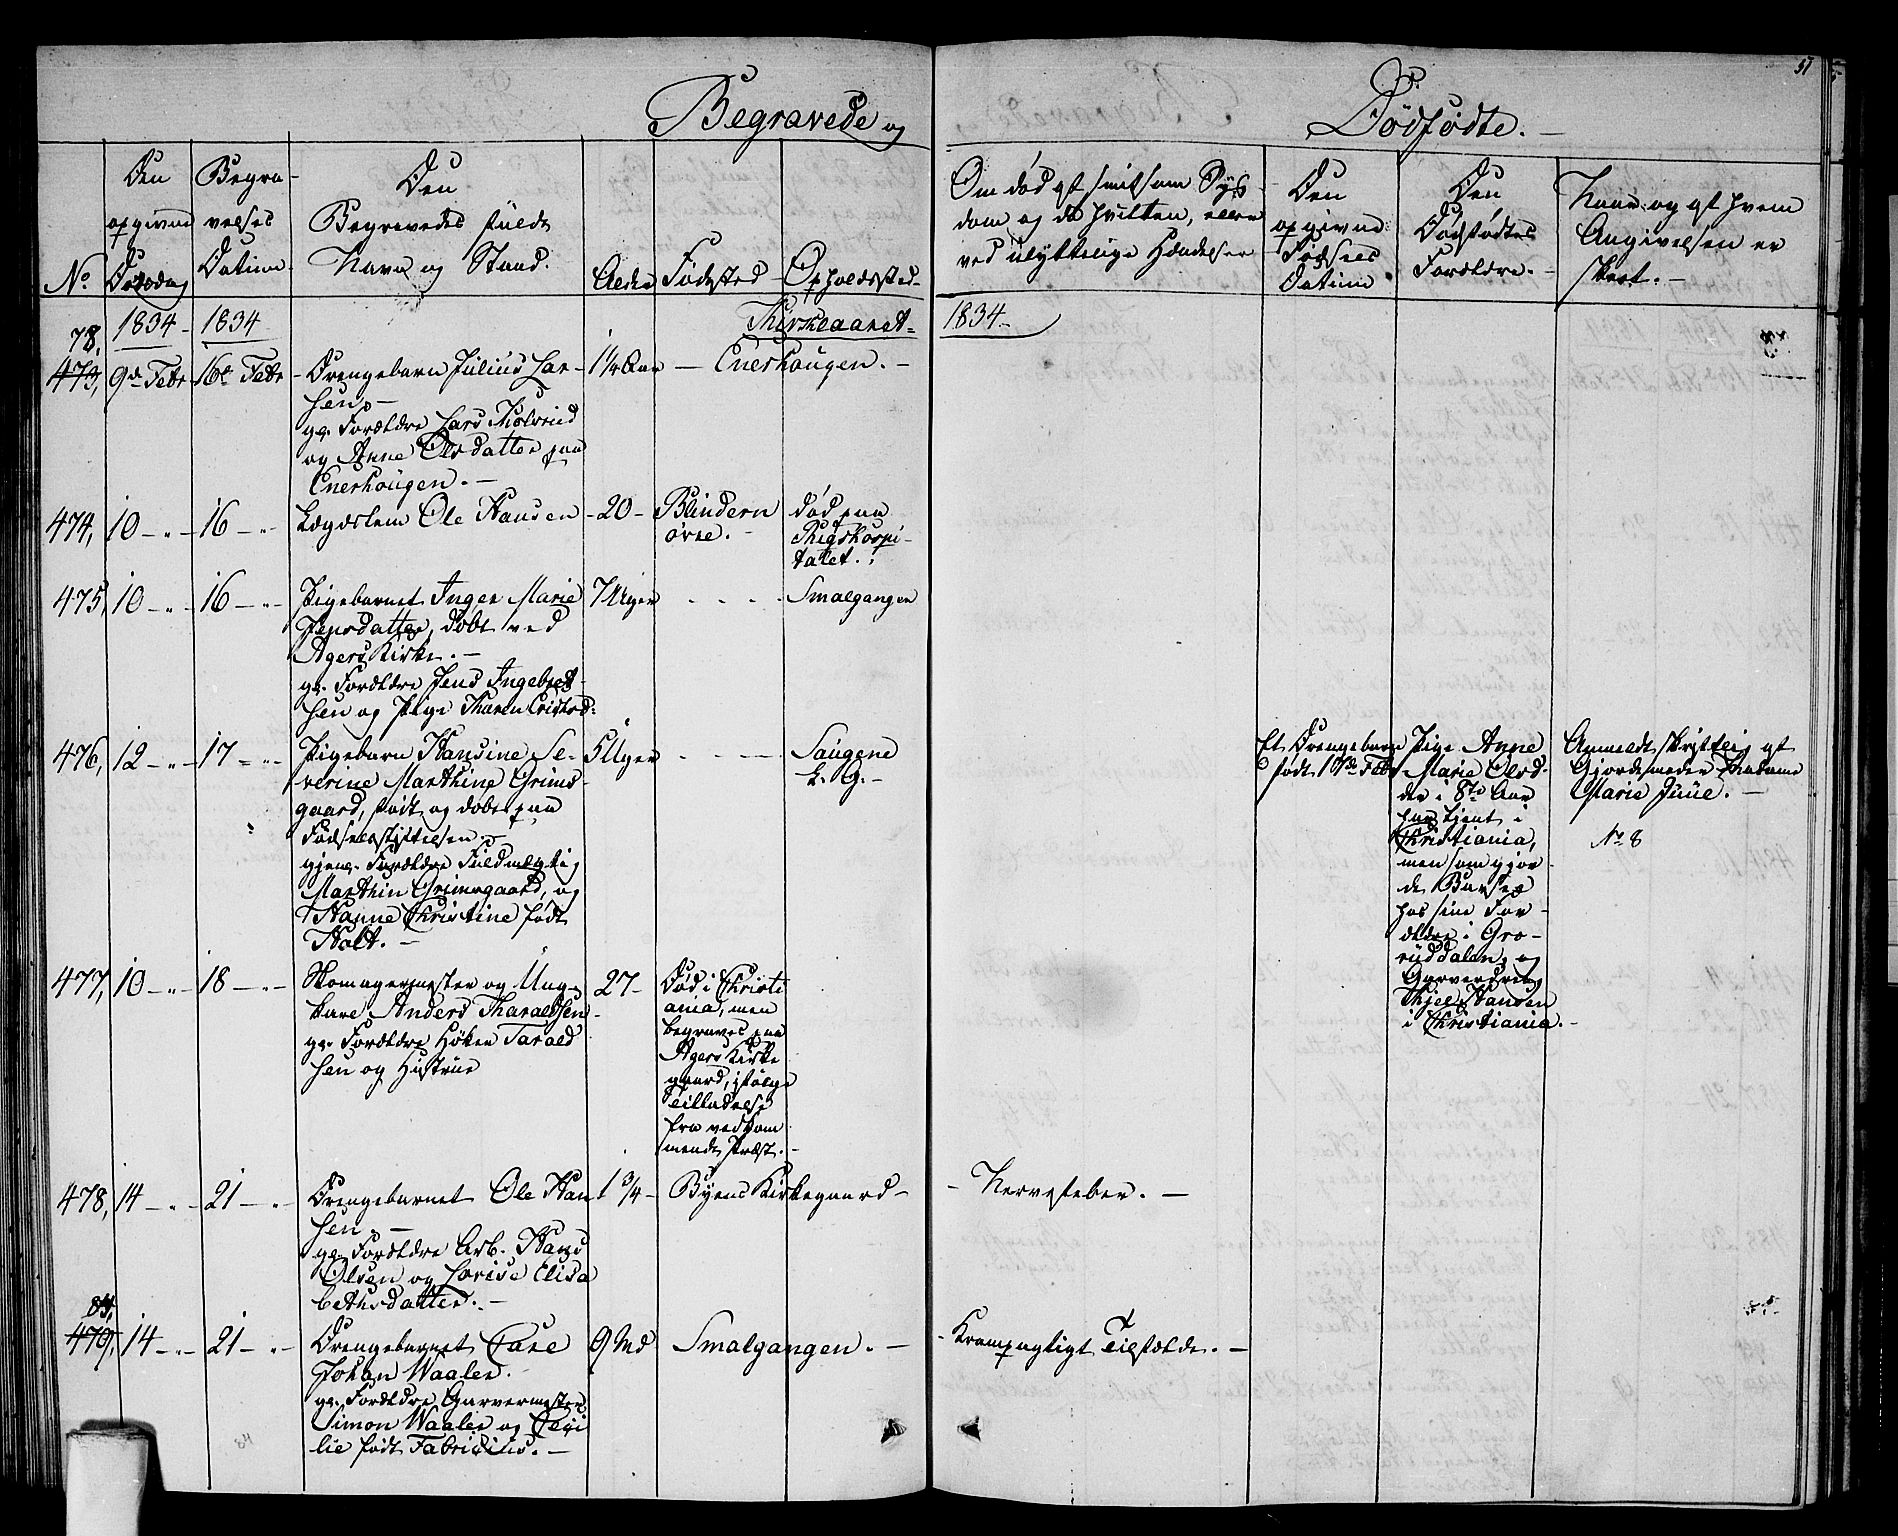 Begravede og
Dødfødte.
57
No
Den opgivne Dødsdag
Begravelses Datum
Den Begravedes fulde Navn og Stand.
Alder
Fødested
Opholdssted
Om død af smitsom Syg-
dom og da hvilken, eller
ved ulykkelige Hændelser
Den opgivne Fødsels Datum
Den Dødfødtes Forældre.
Naar og af hvem
Angivelsen er
skeet.
1834 1834
1834
78,
473, 9de Febr 16de Febr
Drengebarn Julius Lar-
sen,
ga. Forældre Lars
og Anne Olsdatter paa
Enerhougen.
1 1/4 Aar
Enerhougen.
474, 10 16
Lægdslem Ole Hansen
20
Blindern
øvre.
død paa
Rigshospi-
talet.
475, 10 16
Pigebarnet Inger Marie
Jensdatter, døbt ved
Agers Kirke.
ga. Forældre Jens Ingebret-
sen og Pige Maren
7 Uger
Smalgangen
476, 12 17
Pigebarn Hansine Se-
verine Marthine Grims-
gaard, født og døbt paa
Fødselsstiftelsen.
Forældre Fuldmægtig
Marthin Grimsgaard, og
Hanne Christine født
Holt.
5 Uger
Saugene
L. G.
Et Drengebarn
født 17de Febr
Pige Anne
Marie Olsd.
der i 8te Aar
har tjent i
Christiania,
men som gjor-
de Barsel
hos sine For-
ældre i Gro-
ruddalen, og
Garverdreng
Kjel Hansen
i Christiania.
Anmeldt skriftlig af
Gjordemoder Madame
Marie Juul.
No 8
477, 10 18
Skomagermester og Ung-
karl Anders Tharaldsen
ga. Forældre Høker Tarald-
sen og Hustrue
27
Død i Christi
ania, men
begraves paa
Agers Kirke
gaard, ifølge
Tilladelse
fra vedkom
mende Præst.
478, 14 21
Drengebarnet Ole Han
sen.
ga. Forældre Arb. Hans
Olsen og Lovise Elisa
bethsdatter.
1 3/4
Byens Kirkegaard
Nervefeber.
84,
479, 14 21
Drengebarnet Carl
Johan Waaler.
ga. Forældre Garvermester
Simon Waaler og Ceci
lie født Fabritius.
9 Md
Smalgangen.
Krampagtigt Tilfælde.